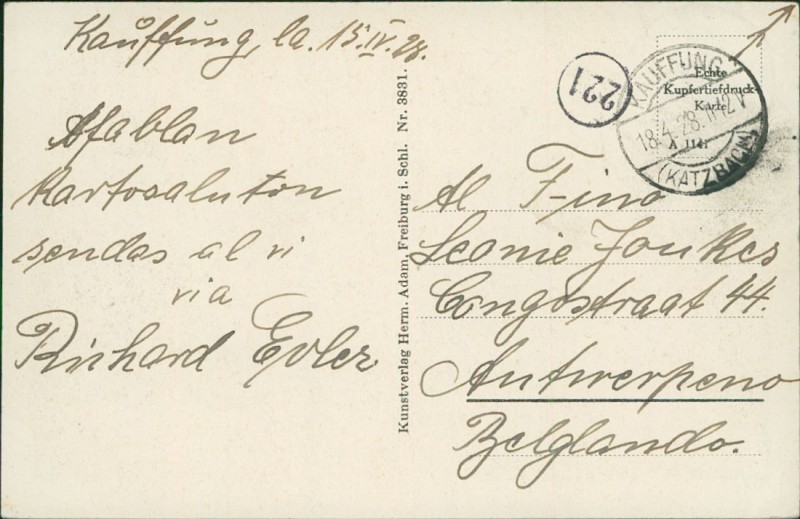 Kaŭffŭng, la. 15.IV.28.
Afablan
kartosaluton
sendas al vi
via
Richard Evler
Kunstverlag Herm. Adam, Freiburg i. Schl. Nr. 3831.
221
Echte
Kupfertiefdruck-
Karte
X 1141
KAUFFUNG
18.4.28. 11-12 V
(KATZBACH)
Al F-ino
Leonie Jonkes
Congostraat 44.
Antwerpeno
Belglando.